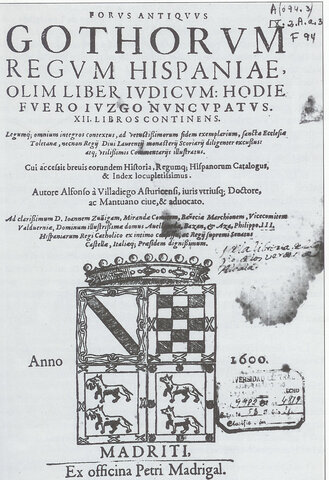 A (094.3)
IX.2.A.a.3
F 94
FORUS ANTIQVVS
GOTHORVM
REGVM HISPANIAE,
OLIM LIBER IVDICVM: HODIE
FVERO IVZGO NVNCVPATVS.
XII. LIBROS CONTINENS.
Legumq; omnium integros contextus, ad vetustissimorum fidem exemplarium, sanctæ Ecclesiæ
Toletanæ, necnon Regij Diui Laurentij monasterij Scoriacij diligenter excussus:
atq; vtilissimis Commentarijs illustratus.
Cui accessit breuis eorundem Historia, Regumq; Hispanorum Catalogus,
& Index locupletissimus.
Autore Alfonso à Villadiego Asturicensi, iuris vtriusq; Doctore,
ac Mantuano ciue, & aduocato.
Ad clarissimum D. Ioannem Zuñigam, Mirandæ Bañecia Marchionem, Vicecomitem
Valduernæ, Dominum illustrissimæ domus Bazan, & Aza, Philippo. III.
Hispaniarum Regi Catholico ex intimo Regij supremi Senatus
Castellæ, Italiæq; Præsidem dignissimum.
Anno 1600.
MADRITI,
Ex officina Petri Madrigal.